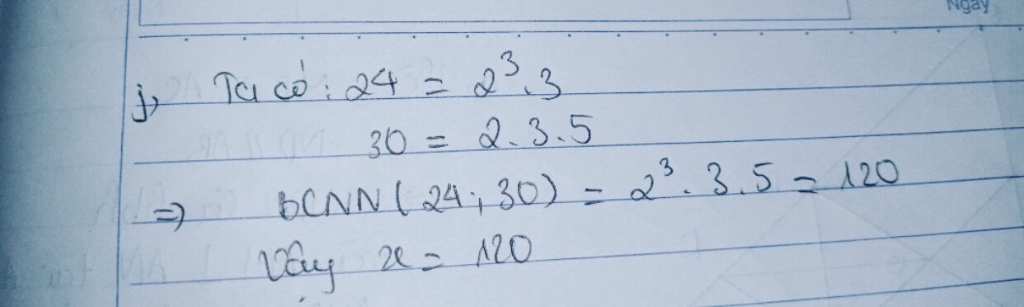 Ngày
j, Ta có: 24 = 2³.3
30 = 2.3.5
=> BCNN(24; 30) = 2³.3.5 = 120
Vậy x = 120